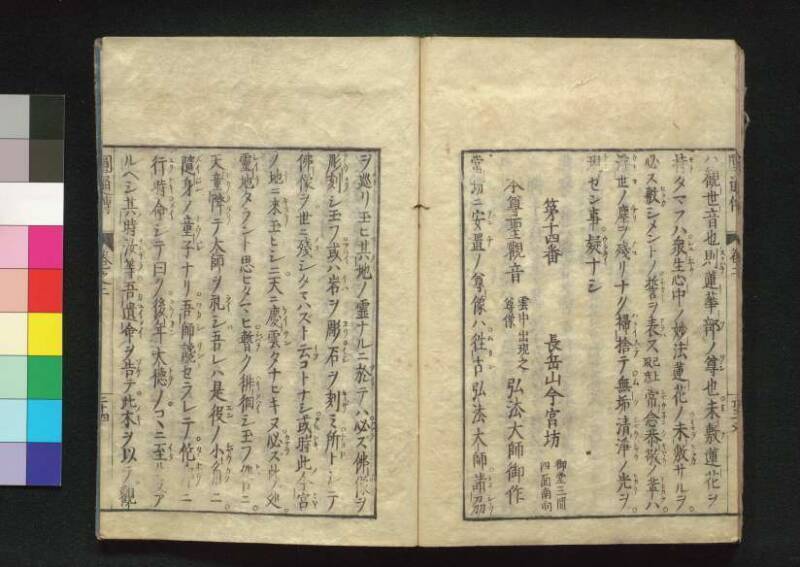 ハ觀世音也則蓮華部ノ尊也未敷蓮花ヲ
持タマフハ衆生心中ノ妙法蓮花ノ未敷サルヲ
必ス敷シメントノ誓ヲ表ス 常念恭敬ノ輩ハ
浮世ノ塵ヲ殘リナク掃捨テ無垢清淨ノ光ヲ
現ゼン事疑ナシ
第十四番 長岳山今宮坊 御堂三間四面南向
本尊聖觀音 雲中出現之尊像 弘法大師御作
當坊ニ安置ノ尊像ハ往古弘法大師諸刕
ヲ巡リ玉ヒ其地ノ靈ナルニ於テハ必ズ佛像ヲ
彫刻シ玉フ或ハ岩ヲ彫石ヲ刻ミ所トシテ
佛像ヲ世ニ殘シタマハズト云コトナシ或時此今宮
ノ地ニ来玉ヒシニ天ニ慶雲タナビキヌ必ズ此処
靈地タラント思ヒタマヒ暫ク徘徊シ玉フ
天童降テ大師ヲ礼シ吾レハ是役ノ小角ニ
隨身ノ童子ナリ吾師謫セラレテ
行時命シテ曰ク後年大德ノコヽニ至ル
ルヘシ其時汝等吾遺命ヲ告テ此木ヲ以テ觀